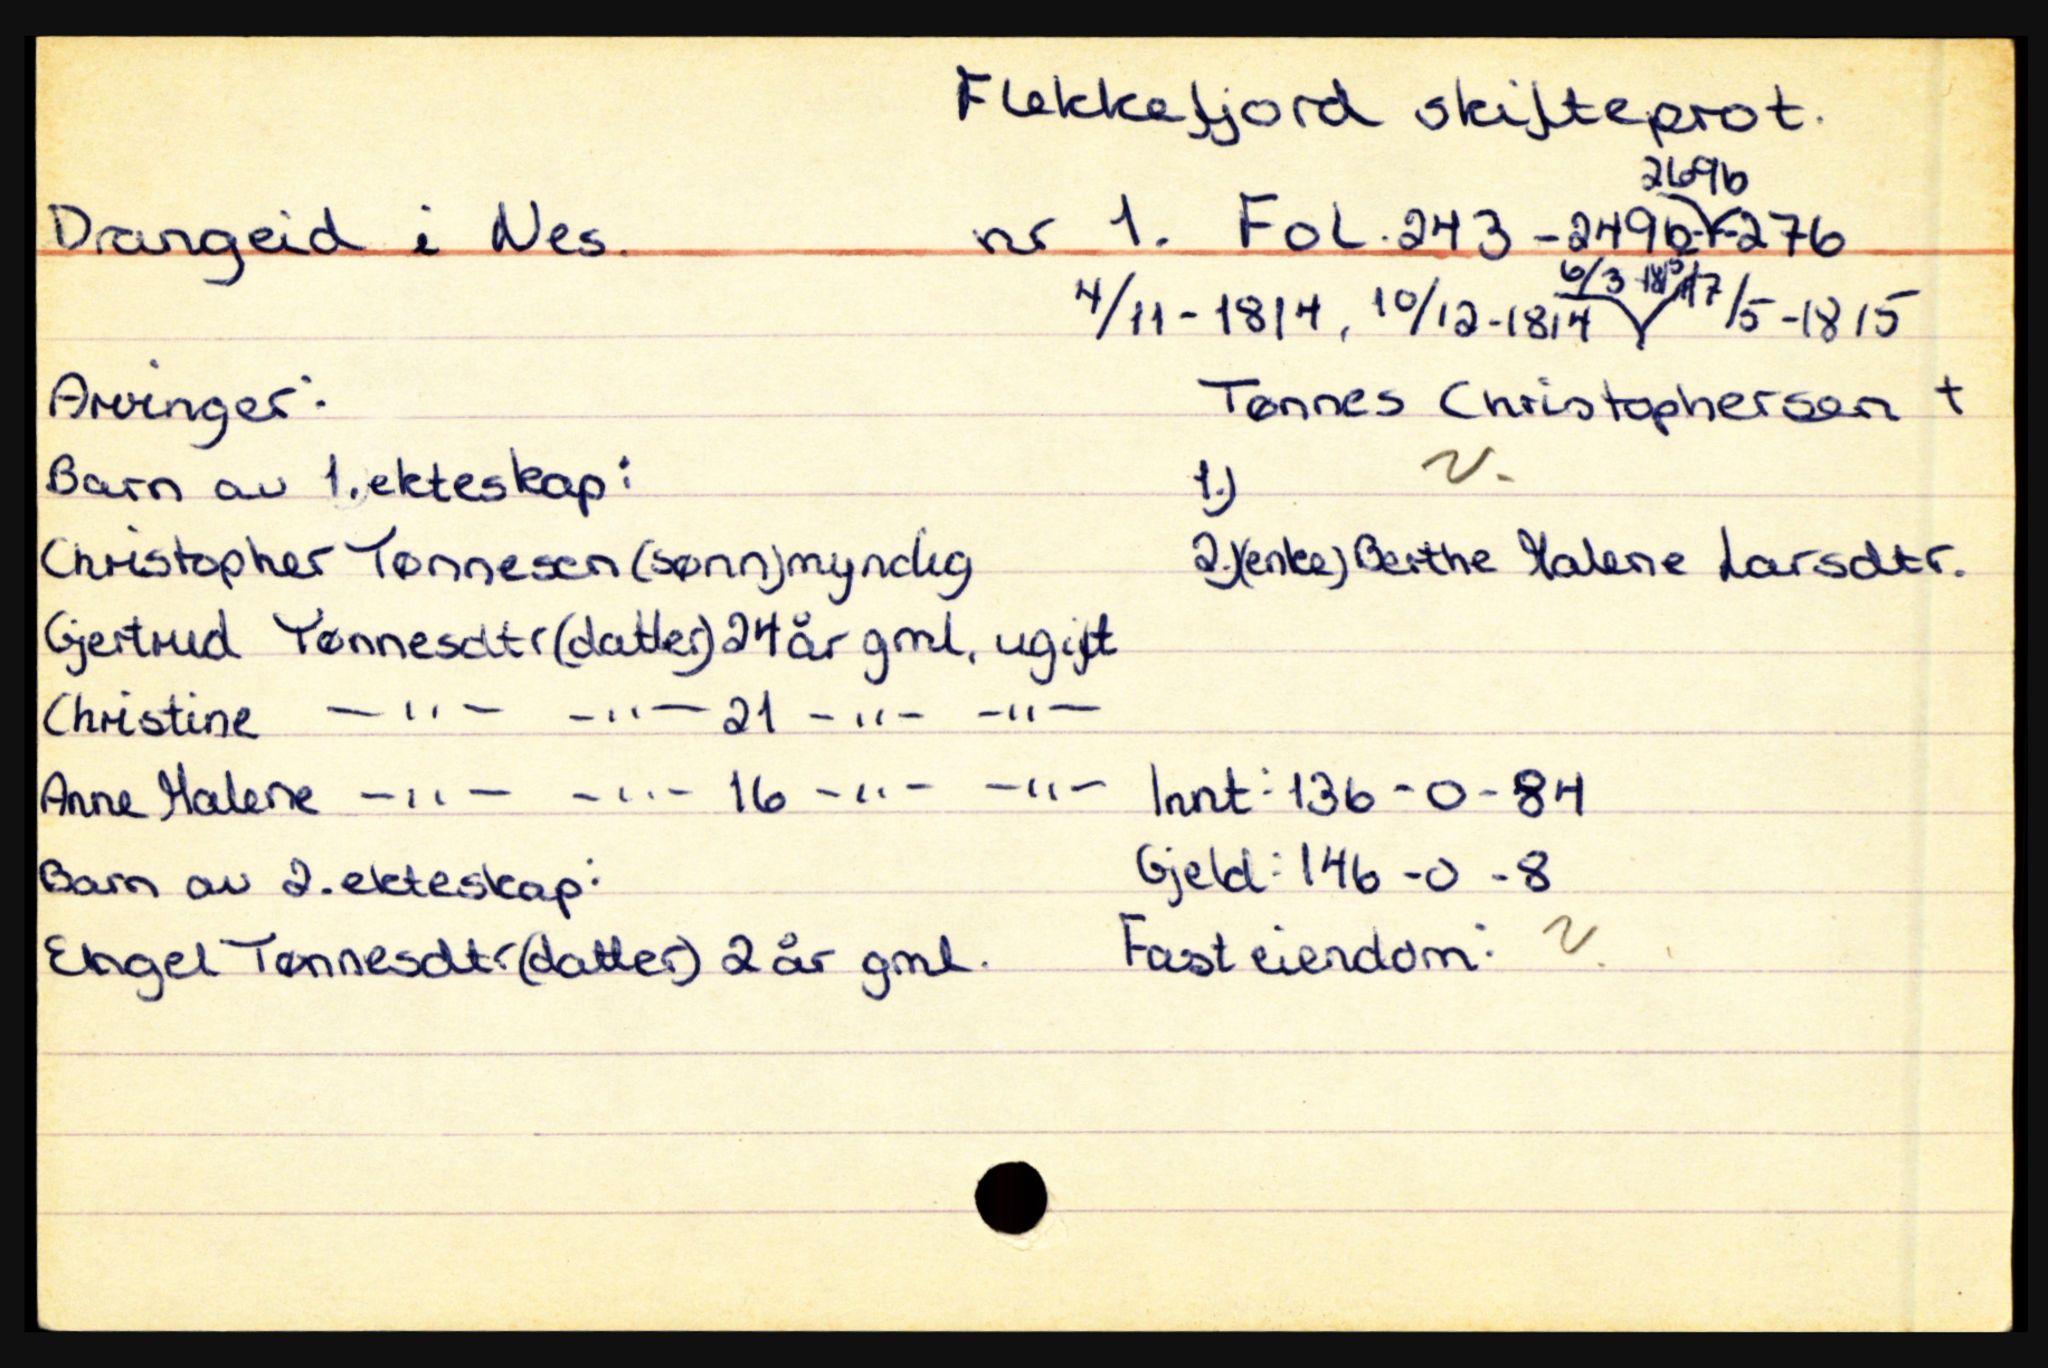 Flekkefjord skifteprot.
269b
Drangeid i Nes. nr 1. Fol. 243 - 249b - 276
6/3 - 1815
4/11 - 1814, 10/12 - 1814 17/5 - 1815
Arvinger: Tønnes Christophersen †
Barn av 1. ekteskap: 1.) ~.
Christopher Tønnesen (sønn) myndig 2.) (enke) Berthe Malene Larsdtr.
Gjertrud Tønnesdtr (datter) 24 år gml, ugift
Christine —〃— —〃— 21 —〃— —〃—
Anne Malene —〃— —〃— 16 —〃— —〃— Innt: 136 - 0 - 84
Barn av 2. ekteskap: Gjeld: 146 - 0 - 8
Engel Tønnesdtr (datter) 2 år gml. Fast eiendom: ~.